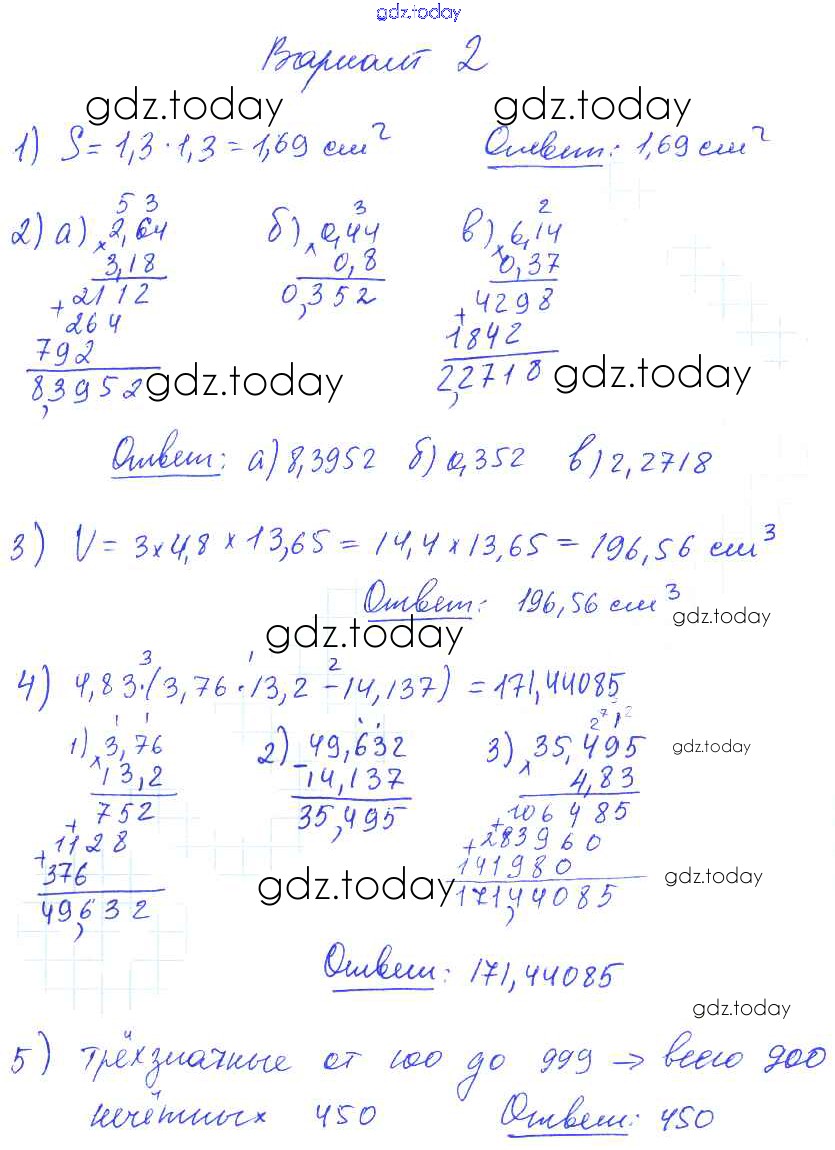 gdz.today
Вариант 2
gdz.today gdz.today
1) S = 1,3 · 1,3 = 1,69 см² Ответ: 1,69 см²
5 3 3 2
2) а) × 2,64 б) × 0,44 в) × 6,14
3,18 0,8 0,37
+ 2112 0,352 + 4298
264 1842
792 2,2718
8,3952 gdz.today gdz.today
Ответ: а) 8,3952 б) 0,352 в) 2,2718
3) V = 3 × 4,8 × 13,65 = 14,4 × 13,65 = 196,56 см³
Ответ: 196,56 см³
gdz.today gdz.today
3 1 2
4) 4,83 · (3,76 · 13,2 − 14,137) = 171,44085
1) × 3,76 2) − 49,632 3) × 35,495 gdz.today
13,2 14,137 4,83
+ 752 35,495 + 106485
+ 1128 + 283960
376 141980
49,632 gdz.today 171,44085 gdz.today
Ответ: 171,44085
gdz.today
5) трёхзначные от 100 до 999 → всего 900
нечётных 450 Ответ: 450